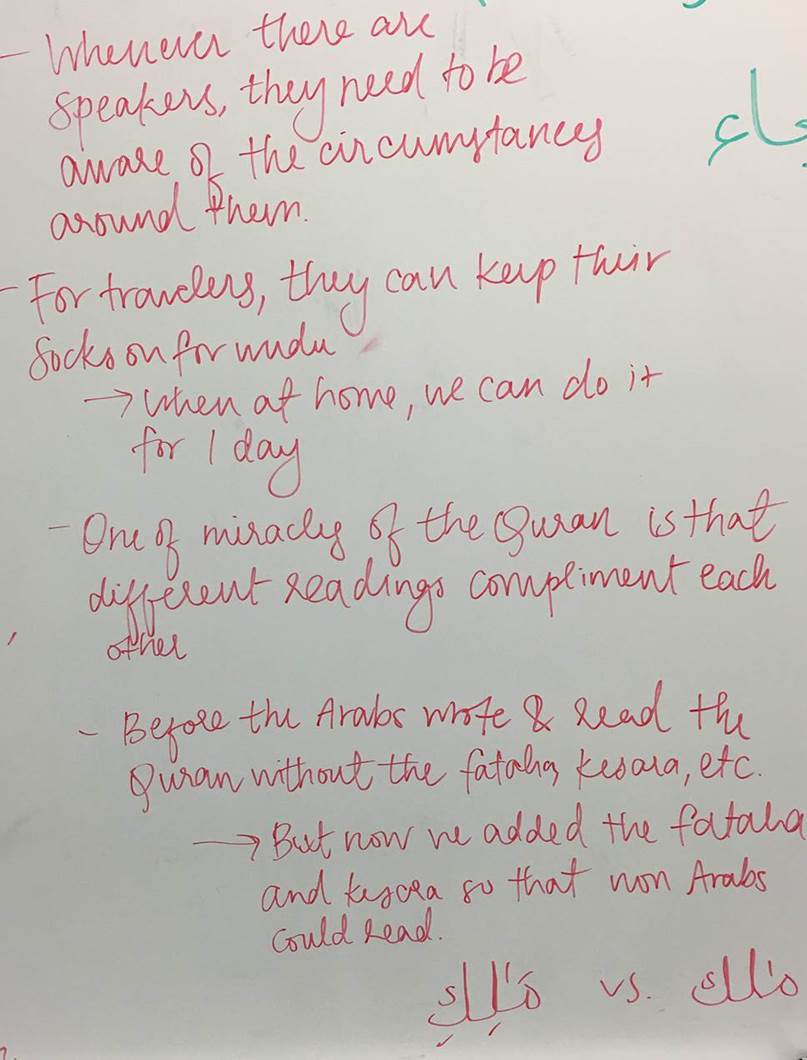 - Whenever there are
speakers, they need to be
aware of the circumstances
around them.
- For travelers, they can keep their
socks on for wudu
→ when at home, we can do it
for 1 day
- One of miracles of the Quran is that
different readings compliment each
other
- Before the Arabs wrote & read the
Quran without the fataha, kesara, etc.
→ But now we added the fataha
and kesara so that non Arabs
could read.
مَٰلِكِ vs. مالك